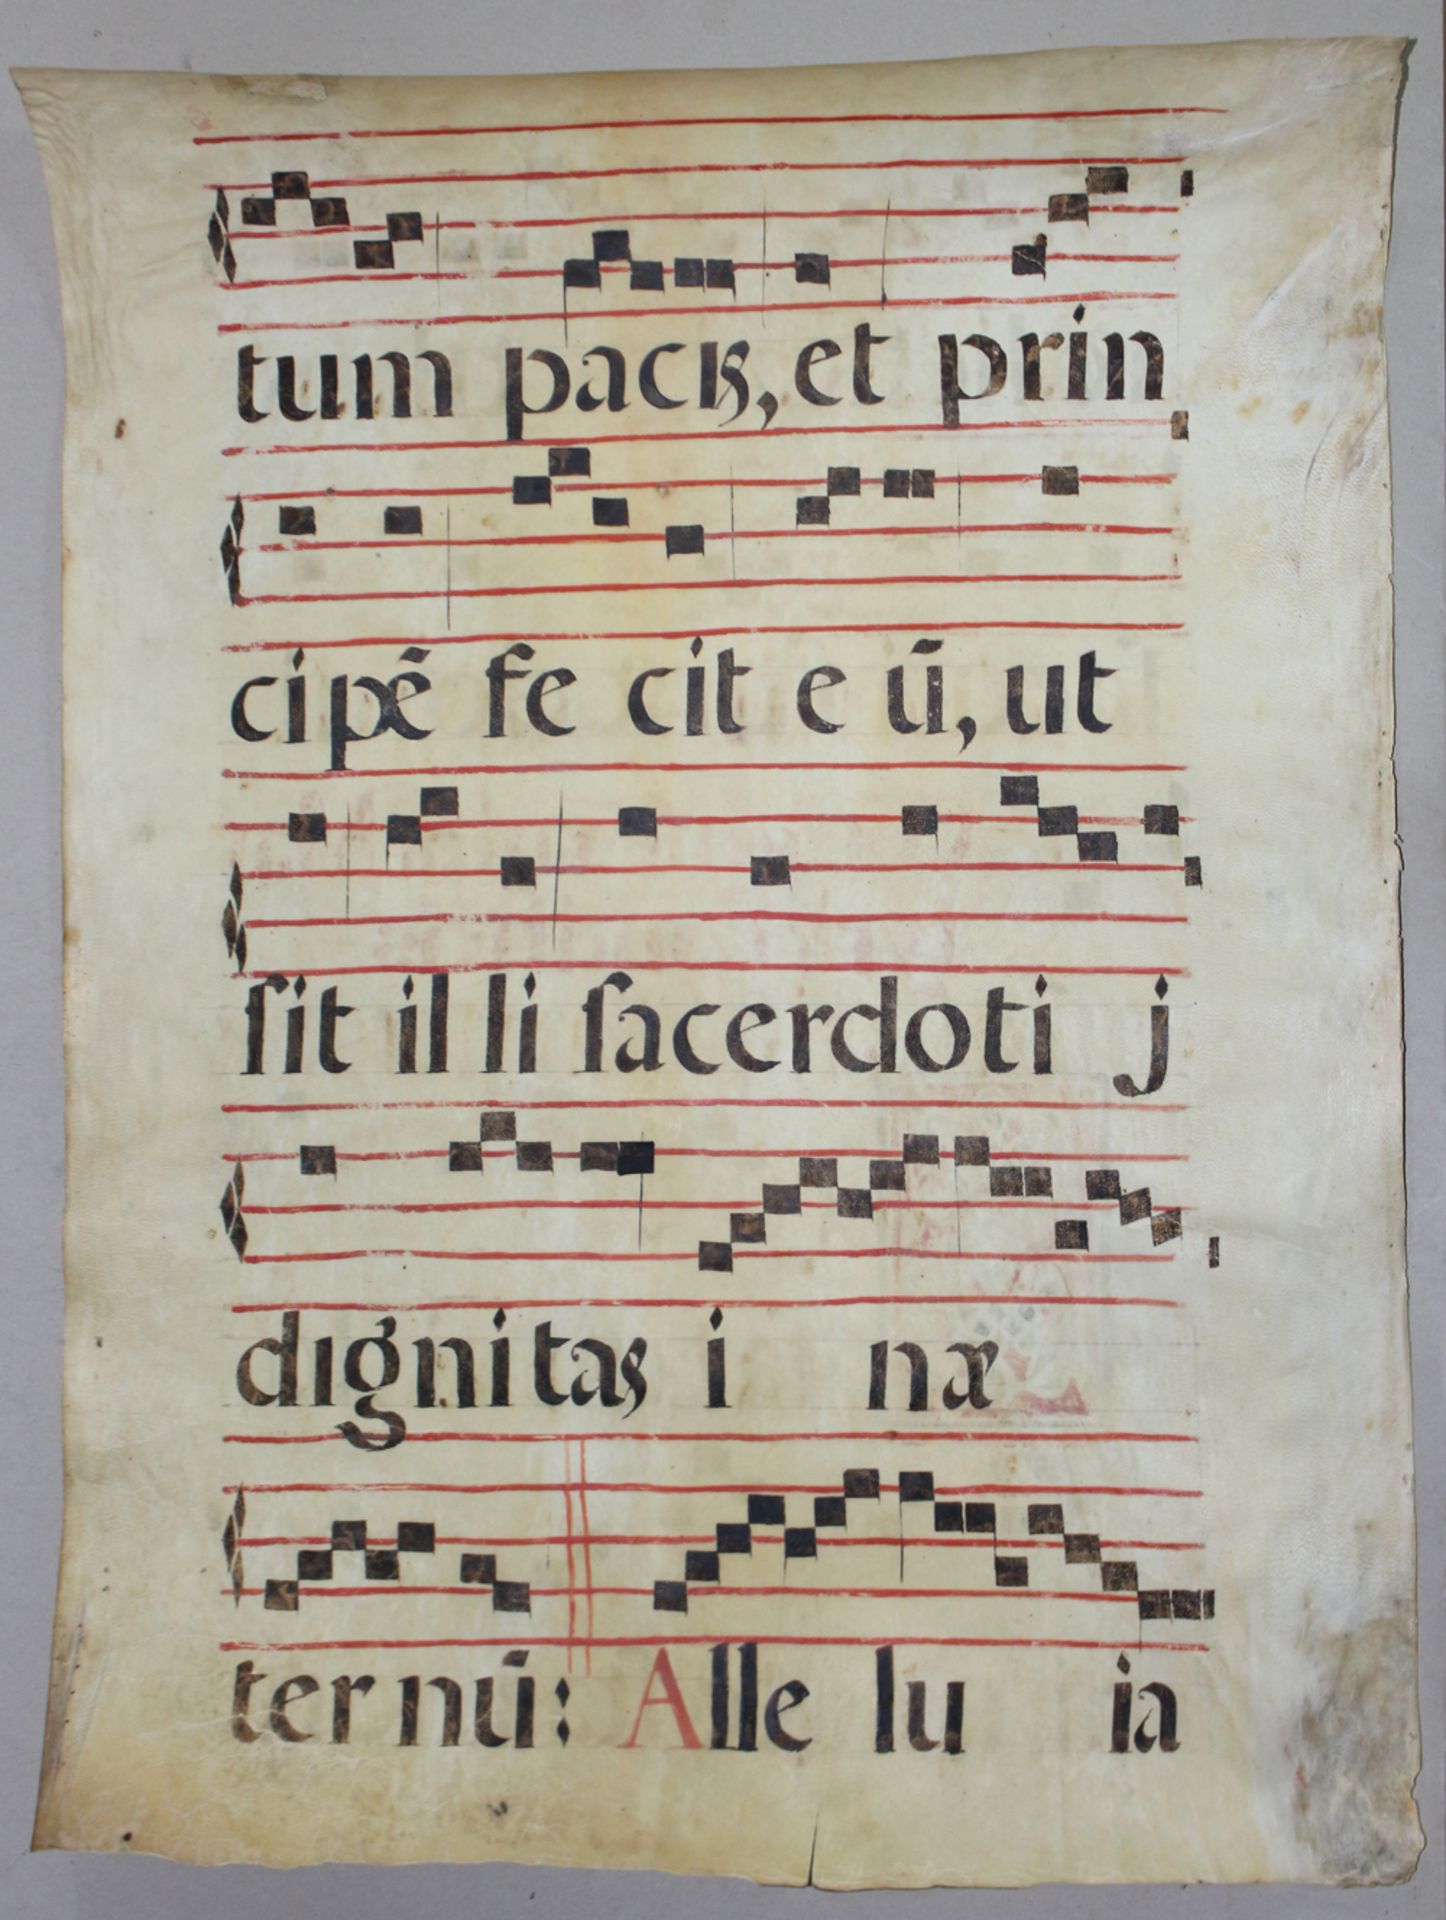 tum pacis, et prin
cipē fe cit e ū, ut
ſit il li ſacerdoti j
dignitas i næ
ter nū: Alle lu ia